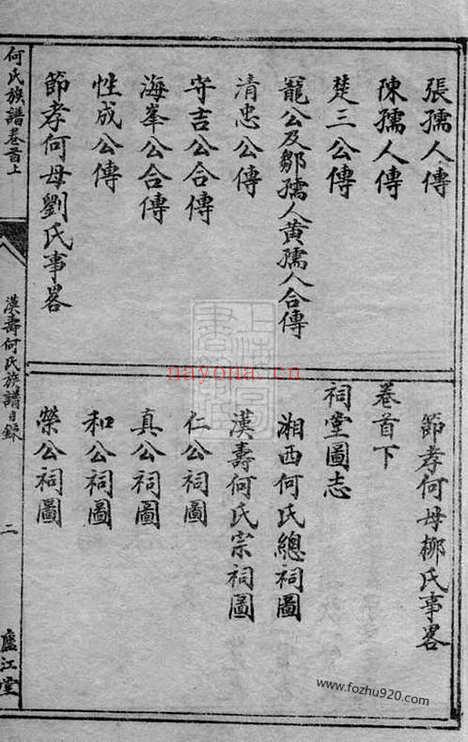 張孺人傳
陳孺人傳
楚三公傳
龍公及鄒孺人黄孺人合傳
清忠公傳
守吉公合傳
海峯公合傳
性成公傳
節孝何母劉氏事畧
節孝何母柳氏事畧
卷首下
祠堂圖志
湘西何氏總祠圖
漢壽何氏宗祠圖
仁公祠圖
真公祠圖
和公祠圖
榮公祠圖
何氏族譜卷首上
漢壽何氏族譜目錄
二
廬江堂
nayona.cn
www.fozhu920.com